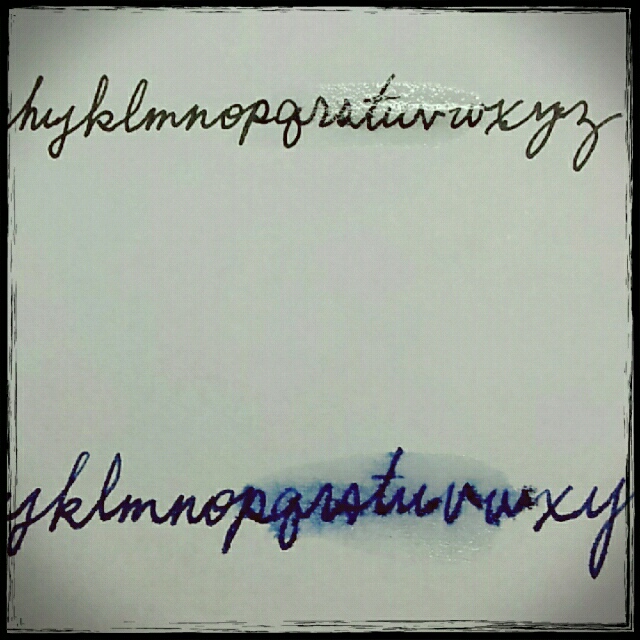 hijklmnopqrstuvwxyz
ijklmnopqrstuvwxy